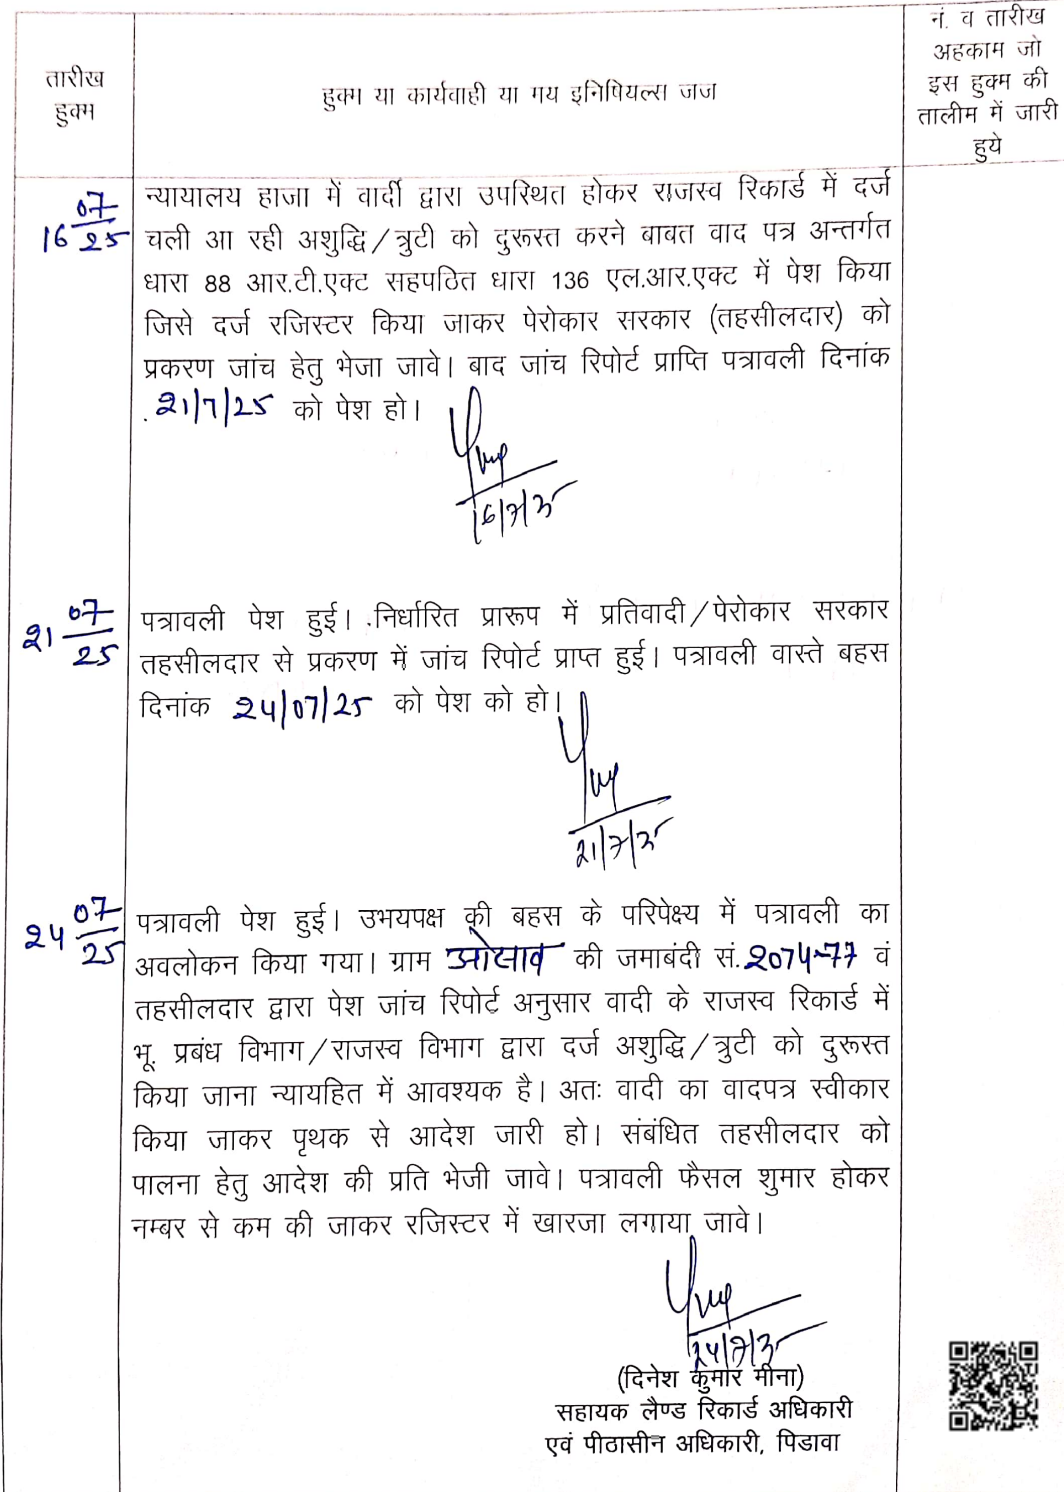 तारीख
हुक्म
हुक्म या कार्यवाही या गय इनिषियल्स जज
नं. व तारीख
अहकाम जो
इस हुक्म की
तालीम में जारी
हुये
16 07/25
न्यायालय हाजा में वार्दी द्वारा उपस्थित होकर राजस्व रिकार्ड में दर्ज
चली आ रही अशुद्धि/त्रुटी को दुरूस्त करने बाबत वाद पत्र अन्तर्गत
धारा 88 आर.टी.एक्ट सहपठित धारा 136 एल.आर.एक्ट में पेश किया
जिसे दर्ज रजिस्टर किया जाकर पेरोकार सरकार (तहसीलदार) को
प्रकरण जांच हेतु भेजा जावे। बाद जांच रिपोर्ट प्राप्ति पत्रावली दिनांक
21/7/25 को पेश हो।
16/7/25
21 07/25
पत्रावली पेश हुई। निर्धारित प्रारूप में प्रतिवादी/पेरोकार सरकार
तहसीलदार से प्रकरण में जांच रिपोर्ट प्राप्त हुई। पत्रावली वास्ते बहस
दिनांक 24/07/25 को पेश को हो।
21/7/25
24 07/25
पत्रावली पेश हुई। उभयपक्ष की बहस के परिपेक्ष्य में पत्रावली का
अवलोकन किया गया। ग्राम ओसाव की जमाबंदी सं. 2074-77 वं
तहसीलदार द्वारा पेश जांच रिपोर्ट अनुसार वादी के राजस्व रिकार्ड में
भू. प्रबंध विभाग/राजस्व विभाग द्वारा दर्ज अशुद्धि/त्रुटी को दुरूस्त
किया जाना न्यायहित में आवश्यक है। अतः वादी का वादपत्र स्वीकार
किया जाकर पृथक से आदेश जारी हो। संबंधित तहसीलदार को
पालना हेतु आदेश की प्रति भेजी जावे। पत्रावली फैसल शुमार होकर
नम्बर से कम की जाकर रजिस्टर में खारजा लगाया जावे।
24/7/25
(दिनेश कुमार मीना)
सहायक लैण्ड रिकार्ड अधिकारी
एवं पीठासीन अधिकारी, पिडावा